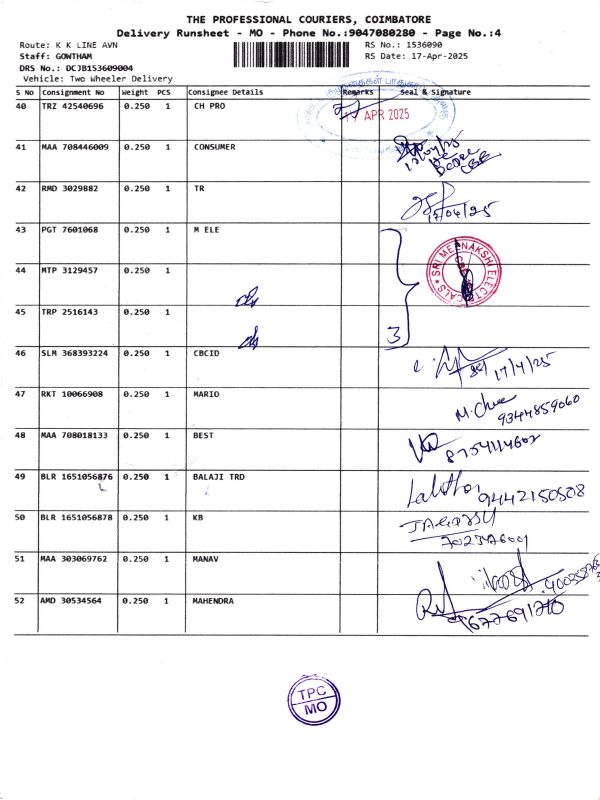 THE PROFESSIONAL COURIERS, COIMBATORE
Delivery Runsheet - MO - Phone No.:9047080280 - Page No.:4
Route: K K LINE AVN
RS No.: 1536090
Staff: GOWTHAM
RS Date: 17-Apr-2025
DRS No.: DCJB153609004
Vehicle: Two Wheeler Delivery
S No Consignment No Weight PCS Consignee Details Remarks Seal & Signature
40 TRZ 42540696 0.250 1 CH PRO
APR 2025
41 MAA 708446009 0.250 1 CONSUMER
17/04/25
42 RMD 3029882 0.250 1 TR
17/04/25
43 PGT 7601068 0.250 1 M ELE
SRI MEENAKSHI ELECTRICALS
44 MTP 3129457 0.250 1
45 TRP 2516143 0.250 1
3
46 SLM 368393224 0.250 1 CBCID
17/4/25
47 RKT 10066908 0.250 1 MARIO
9344859060
48 MAA 708018133 0.250 1 BEST
8754114602
49 BLR 1651056876 0.250 1 BALAJI TRD
9442150508
50 BLR 1651056878 0.250 1 KB
51 MAA 303069762 0.250 1 MANAV
52 AMD 30534564 0.250 1 MAHENDRA
TPC
MO